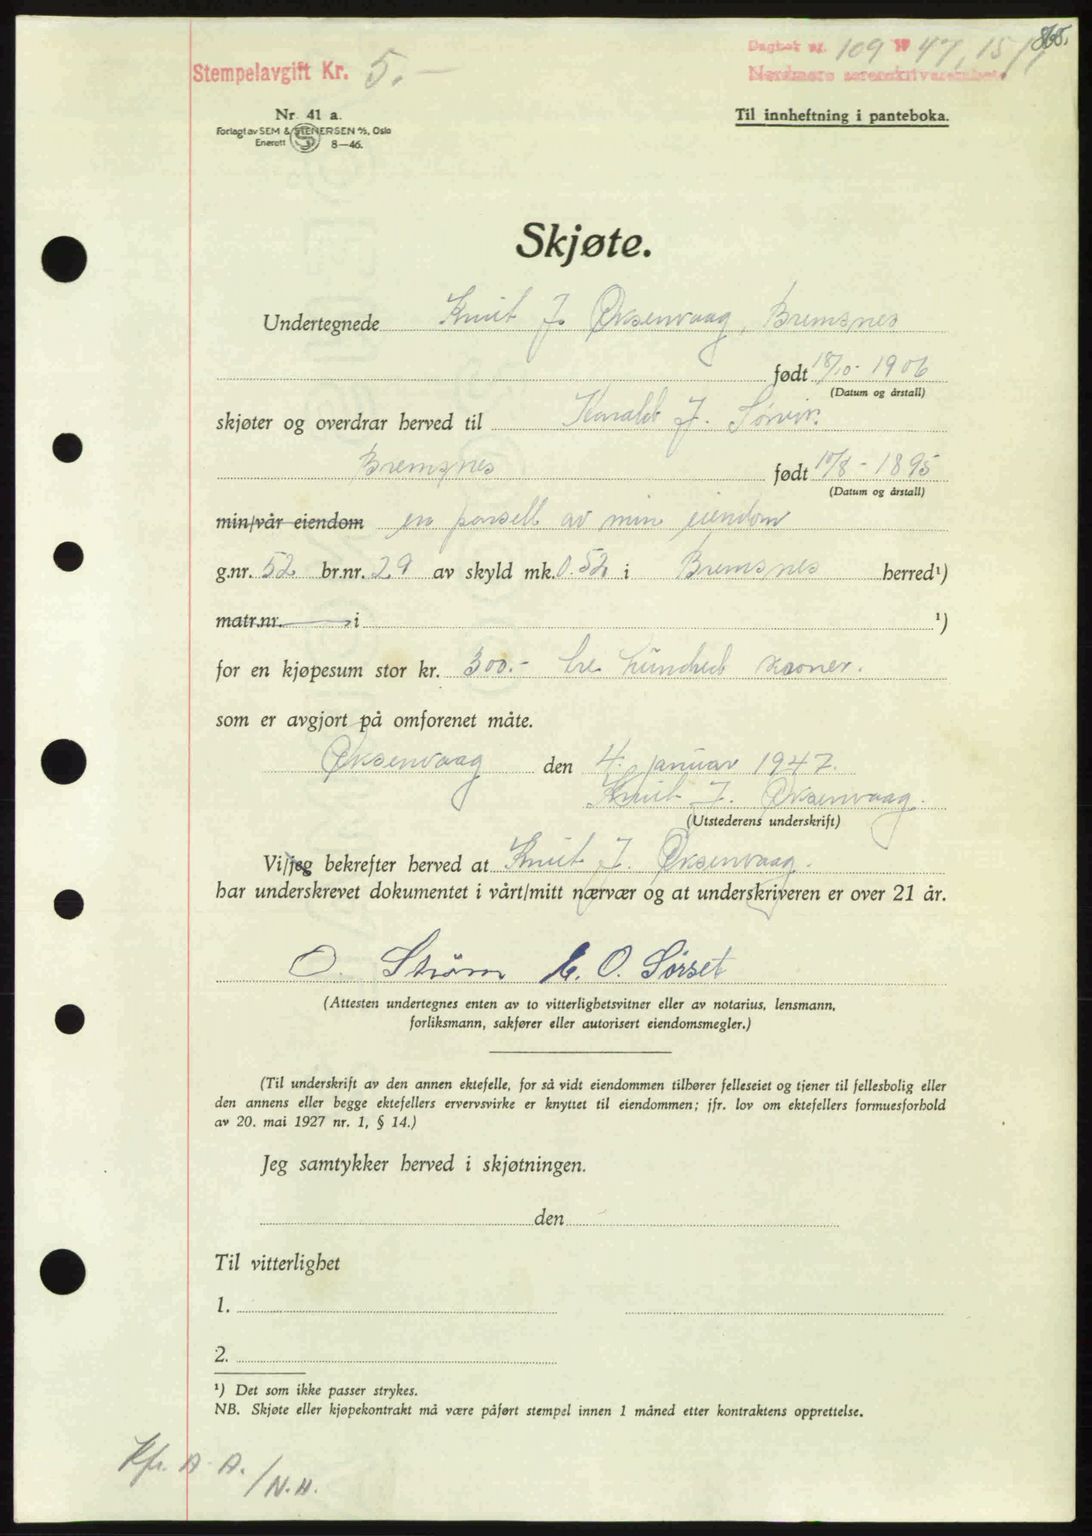 865.
Dagbok nr. 109 19 47, 15/1
Nordmøre sorenskriverembete
Stempelavgift Kr. 5.-
Nr. 41 a.
Forlagt av SEM & STENERSEN A/S, Oslo
Enerett 8—46.
Til innheftning i panteboka.
Skjøte.
Undertegnede Knut J. Øksenvaag, Bremsnes
født 18/10 - 1906
(Datum og årstall)
skjøter og overdrar herved til Harald J. Sørvik
Bremsnes født 10/8 - 1895
(Datum og årstall)
min/vår eiendom en parsell av min eiendom
g.nr. 52 br.nr. 29 av skyld mk. 0.52 i Bremsnes herred¹)
matr.nr. i ¹)
for en kjøpesum stor kr. 300.- tre hundred kroner.
som er avgjort på omforenet måte.
Øksenvaag den 4. januar 1947.
Knut J. Øksenvaag.
(Utstederens underskrift)
Vi/jeg bekrefter herved at Knut J. Øksenvaag.
har underskrevet dokumentet i vårt/mitt nærvær og at underskriveren er over 21 år.
O. Strøm E. O. Sørset
(Attesten undertegnes enten av to vitterlighetsvitner eller av notarius, lensmann,
forliksmann, sakfører eller autorisert eiendomsmegler.)
(Til underskrift av den annen ektefelle, for så vidt eiendommen tilhører felleseiet og tjener til fellesbolig eller
den annens eller begge ektefellers ervervsvirke er knyttet til eiendommen; jfr. lov om ektefellers formuesforhold
av 20. mai 1927 nr. 1, § 14.)
Jeg samtykker herved i skjøtningen.
den
Til vitterlighet
1.
2.
¹) Det som ikke passer strykes.
NB. Skjøte eller kjøpekontrakt må være påført stempel innen 1 måned etter kontraktens opprettelse.
Kfr. A. A. /N.H.